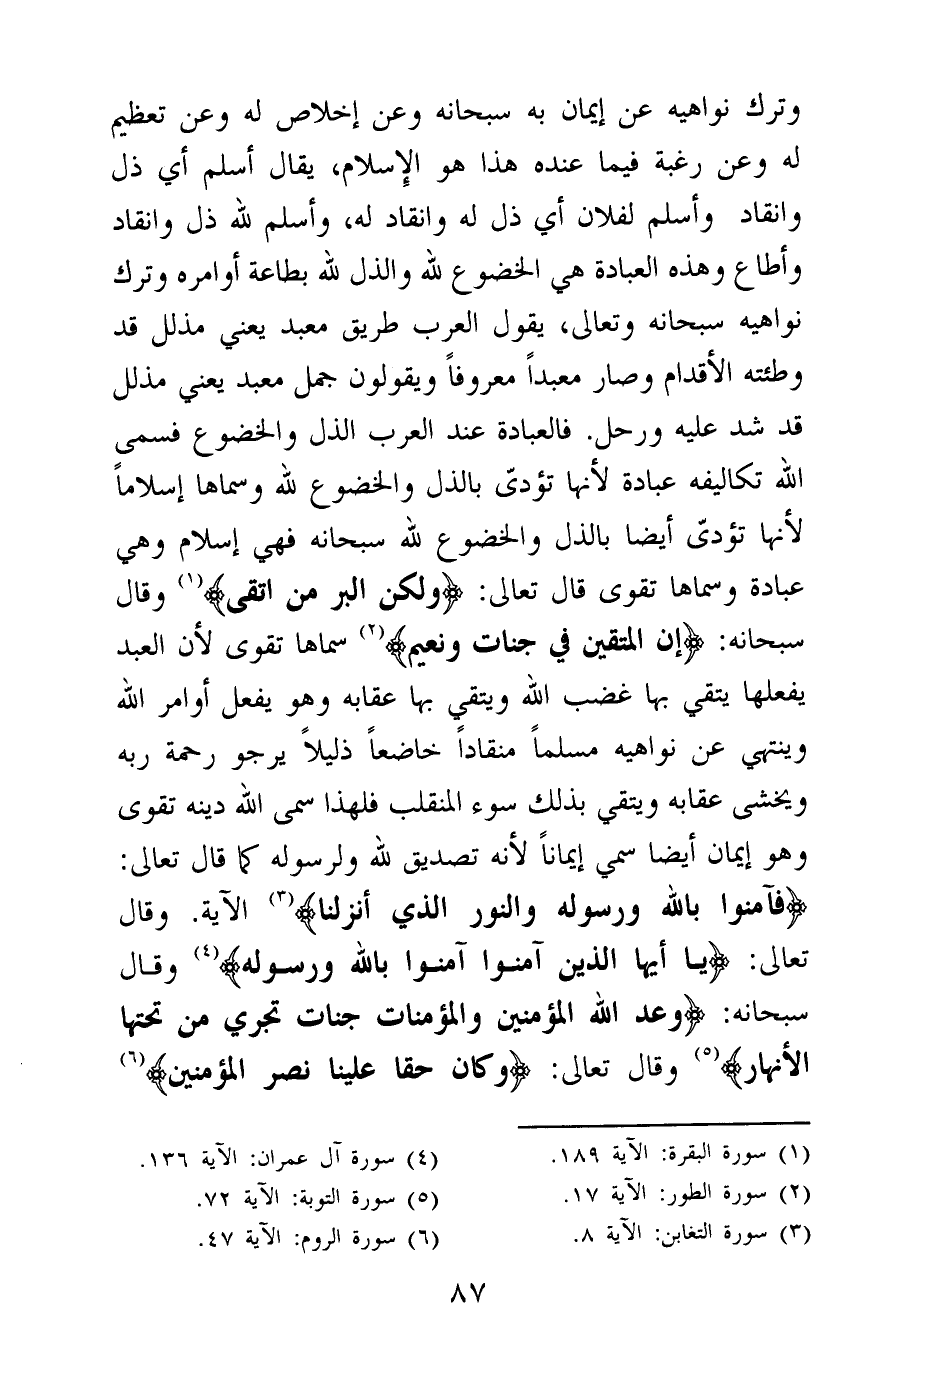 وترك نواهيه عن إيمان به سبحانه وعن إخلاص له وعن تعظيم
له وعن رغبة فيما عنده هذا هو الإسلام، يقال أسلم أي ذل
وانقاد وأسلم لفلان أي ذل له وانقاد له، وأسلم لله ذل وانقاد
وأطاع وهذه العبادة هي الخضوع لله والذل لله بطاعة أوامره وترك
نواهيه سبحانه وتعالى، يقول العرب طريق معبد يعني مذلل قد
وطئته الأقدام وصار معبداً معروفاً ويقولون جمل معبد يعني مذلل
قد شد عليه ورحل. فالعبادة عند العرب الذل والخضوع فسمى
الله تكاليفه عبادة لأنها تؤدىّ بالذل والخضوع لله وسماها إسلاماً
لأنها تؤدىّ أيضا بالذل والخضوع لله سبحانه فهي إسلام وهي
عبادة وسماها تقوى قال تعالى: ﴿ولكن البر من اتقى﴾(١) وقال
سبحانه: ﴿إن المتقين في جنات ونعيم﴾(٢) سماها تقوى لأن العبد
يفعلها يتقي بها غضب الله ويتقي بها عقابه وهو يفعل أوامر الله
وينتهي عن نواهيه مسلماً منقاداً خاضعاً ذليلاً يرجو رحمة ربه
ويخشى عقابه ويتقي بذلك سوء المنقلب فلهذا سمى الله دينه تقوى
وهو إيمان أيضا سمي إيماناً لأنه تصديق لله ولرسوله كما قال تعالى:
﴿فآمنوا بالله ورسوله والنور الذي أنزلنا﴾(٣) الآية. وقال
تعالى: ﴿يا أيها الذين آمنوا آمنوا بالله ورسوله﴾(٤) وقال
سبحانه: ﴿وعد الله المؤمنين والمؤمنات جنات تجري من تحتها
الأنهار﴾(٥) وقال تعالى: ﴿وكان حقا علينا نصر المؤمنين﴾(٦)
(١) سورة البقرة: الآية ١٨٩.
(٢) سورة الطور: الآية ١٧.
(٣) سورة التغابن: الآية ٨.
(٤) سورة آل عمران: الآية ١٣٦.
(٥) سورة التوبة: الآية ٧٢.
(٦) سورة الروم: الآية ٤٧.
٨٧